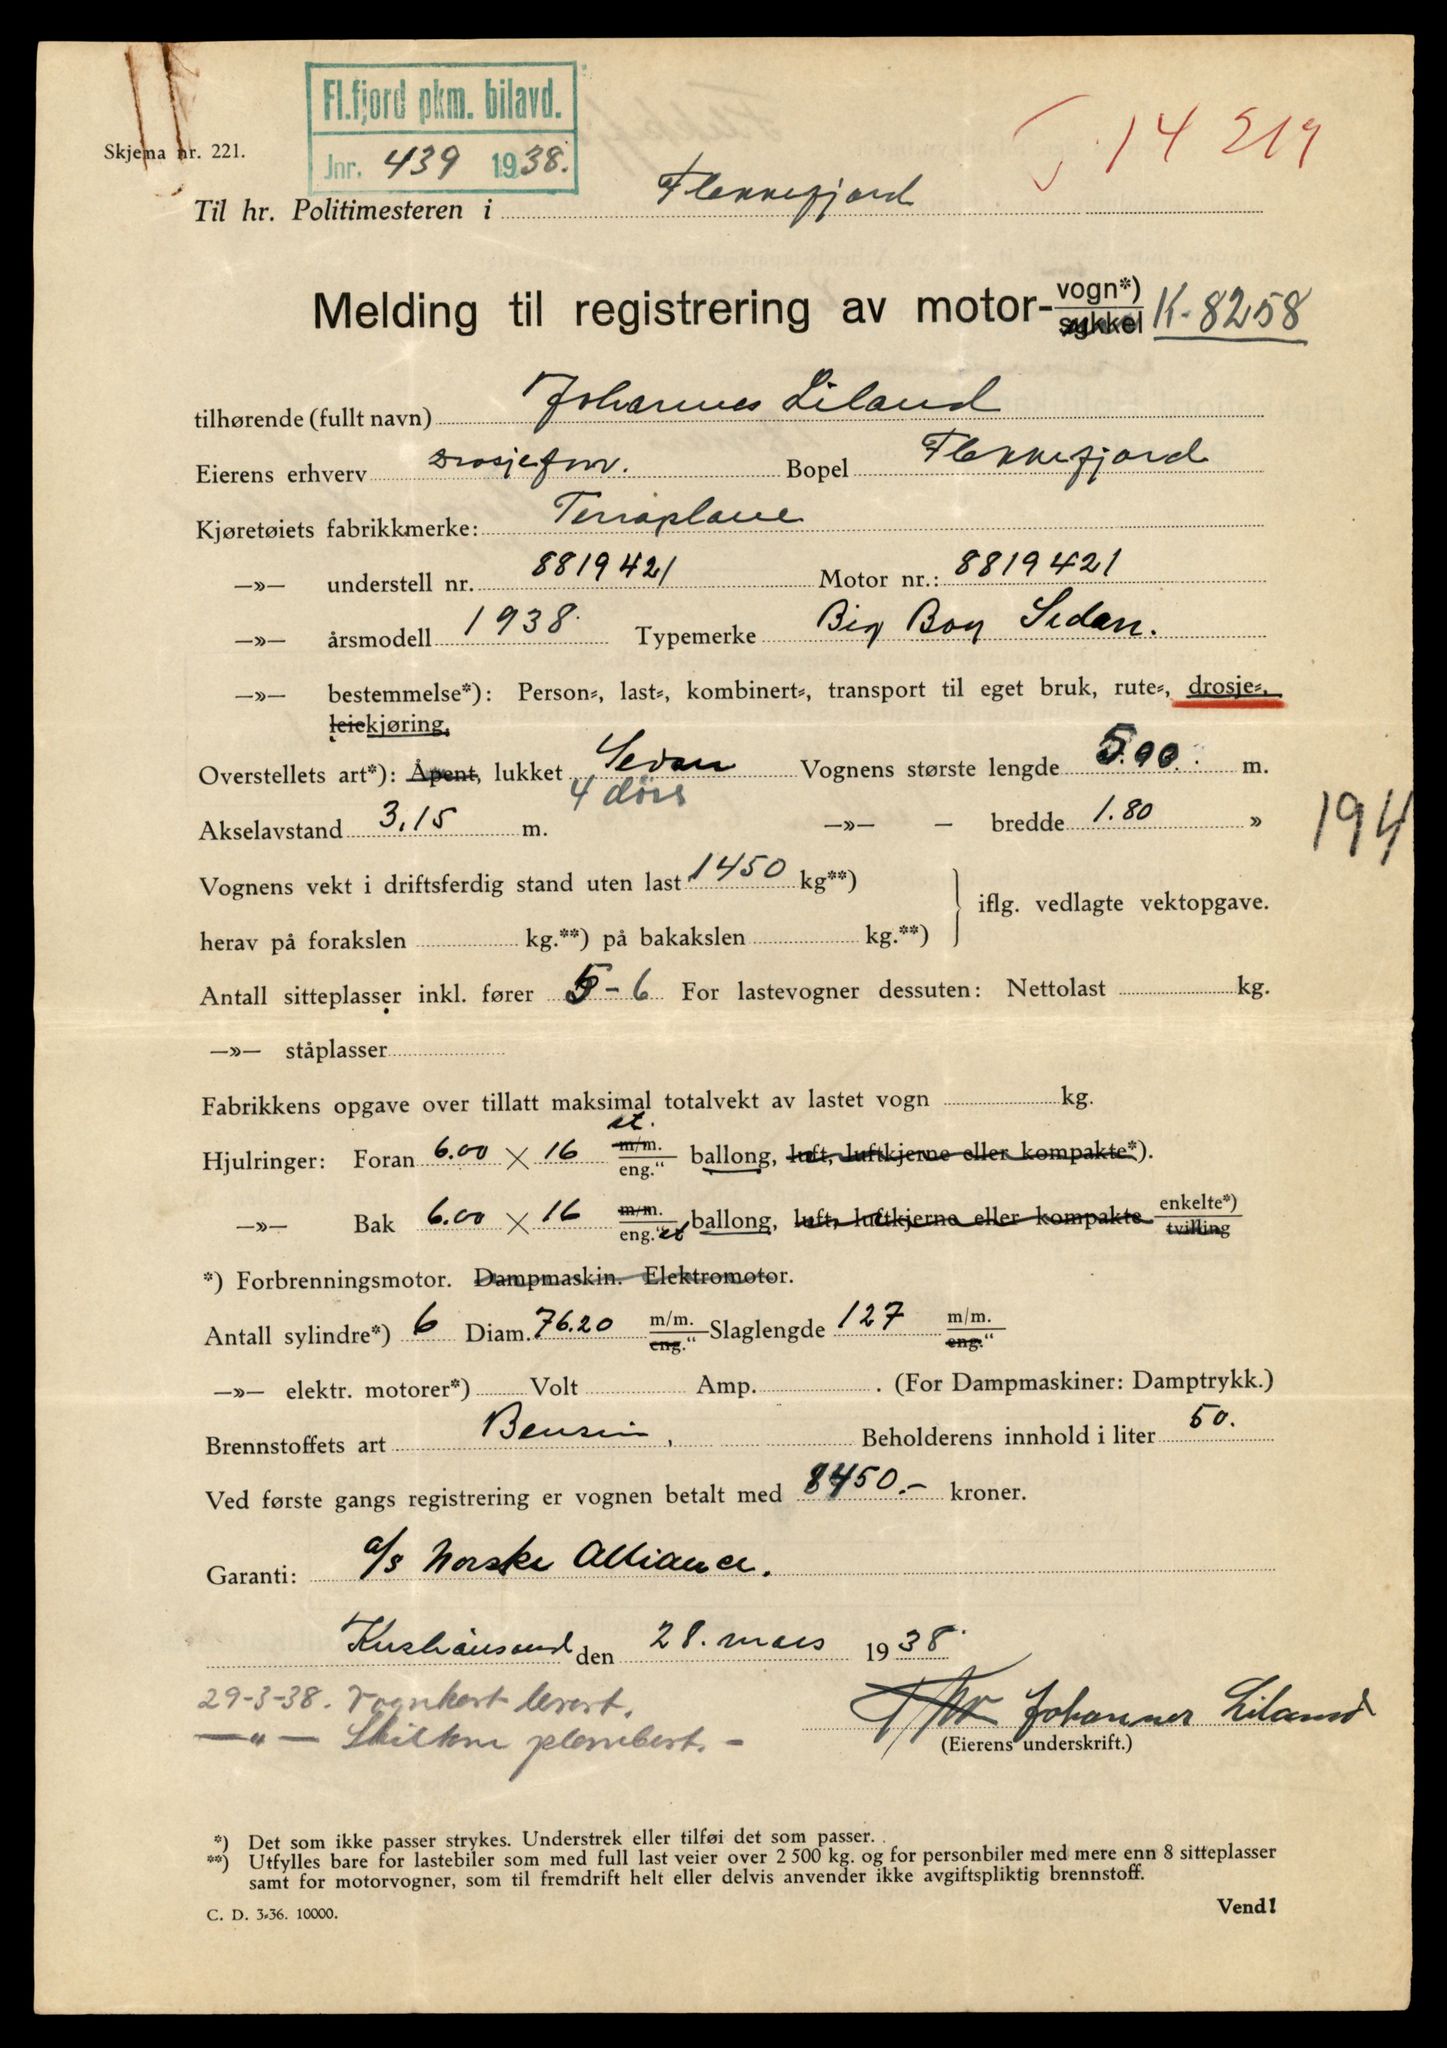 Fl.fjord pkm. bilavd.
Jnr. 439 1938.
14 219
Skjema nr. 221.
Til hr. Politimesteren i Flekkefjord
Melding til registrering av motor-vogn*) sykkel K-8258
tilhørende (fullt navn) Johannes Liland
Eierens erhverv Drosjeforr. Bopel Flekkefjord
Kjøretøiets fabrikkmerke: Terraplane
—»— understell nr. 8819421 Motor nr.: 8819421
—»— årsmodell 1938. Typemerke Big Boy Sedan.
—»— bestemmelse*): Person-, last-, kombinert-, transport til eget bruk, rute-, drosje-,
leiekjøring.
Overstellets art*): Åpent, lukket Sedan Vognens største lengde 5.00 m.
4 dørs
Akselavstand 3,15 m. —»— — bredde 1.80 »
194
Vognens vekt i driftsferdig stand uten last 1450 kg**)
iflg. vedlagte vektopgave.
herav på forakslen kg.**) på bakakslen kg.**)
Antall sitteplasser inkl. fører 5-6 For lastevogner dessuten: Nettolast kg.
—»— ståplasser
Fabrikkens opgave over tillatt maksimal totalvekt av lastet vogn kg.
Hjulringer: Foran 6.00 × 16 m/m. eng." ballong, luft, luftkjerne eller kompakte*).
—»— Bak 6.00 × 16 m/m. eng." ballong, luft, luftkjerne eller kompakte enkelte*) tvilling
*) Forbrenningsmotor. Dampmaskin. Elektromotor.
Antall sylindre*) 6 Diam. 76.20 m/m. eng." Slaglengde 127 m/m. eng."
—»— elektr. motorer*) Volt Amp. . (For Dampmaskiner: Damptrykk.)
Brennstoffets art Bensin, Beholderens innhold i liter 50.
Ved første gangs registrering er vognen betalt med 8450.- kroner.
Garanti: a/s Norske Alliance.
Kristiansand den 28. mars 1938.
29-3-38. Vognkort levert.
—"— Skiltene plombert. -
Johannes Liland
(Eierens underskrift.)
*) Det som ikke passer strykes. Understrek eller tilføi det som passer.
**) Utfylles bare for lastebiler som med full last veier over 2 500 kg. og for personbiler med mere enn 8 sitteplasser
samt for motorvogner, som til fremdrift helt eller delvis anvender ikke avgiftspliktig brennstoff.
C. D. 3-36. 10000.
Vend!